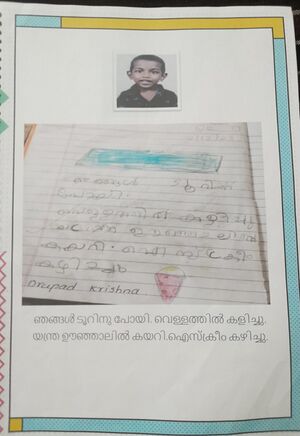 ഞങ്ങൾ ടൂറിന്
പോയി.
വെള്ളത്തിൽ കളിച്ചു
യന്ത്ര ഊഞ്ഞാലിൽ
കയറി. ഐസ്ക്രീം
കഴിച്ചു
Drupad Krishna
ഞങ്ങൾ ടൂറിനു പോയി. വെള്ളത്തിൽ കളിച്ചു.
യന്ത്ര ഊഞ്ഞാലിൽ കയറി.ഐസ്ക്രീം കഴിച്ചു.